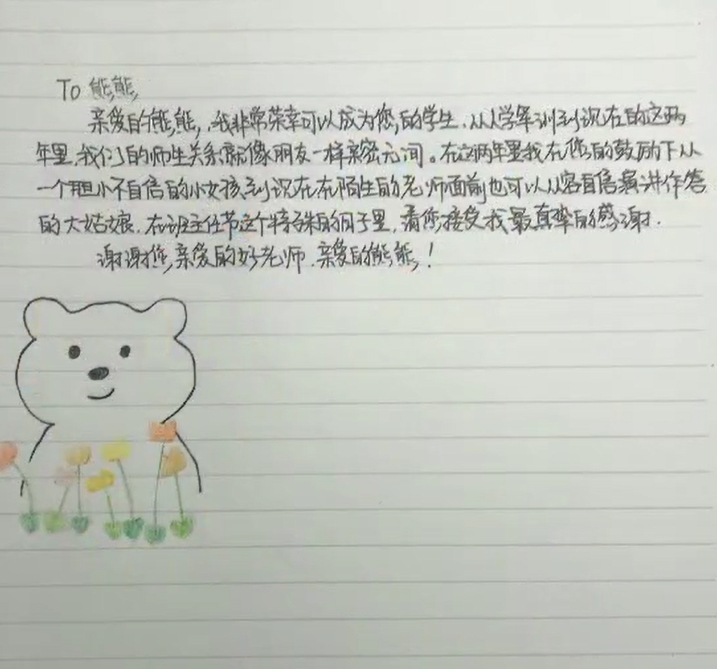 To 熊熊,
亲爱的熊熊,我非常荣幸可以成为您的学生.从入学军训到现在的这两
年里,我们的师生关系就像朋友一样亲密无间。在这两年里我在您的鼓励下从
一个胆小不自信的小女孩到现在在陌生的老师面前也可以从容自信演讲作答
的大姑娘.在班主任节这个特殊的日子里,请您接受我最真挚的感谢.
谢谢您,亲爱的好老师.亲爱的熊熊!